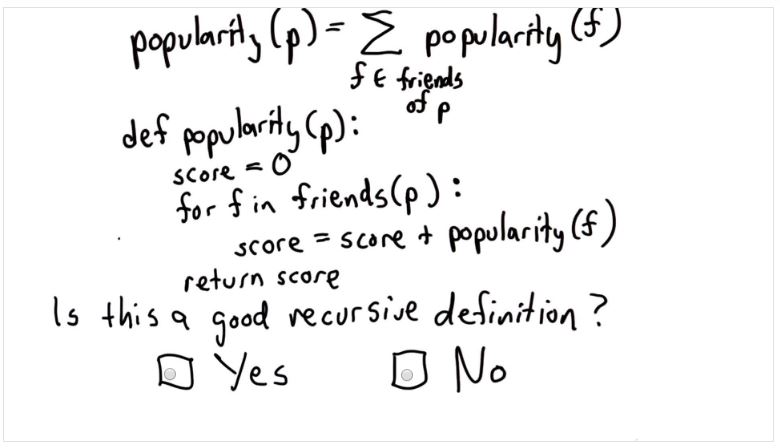 popularity(p) = Σ popularity(f)
f ∈ friends
of p
def popularity(p):
score = 0
for f in friends(p):
score = score + popularity(f)
return score
Is this a good recursive definition?
Yes No